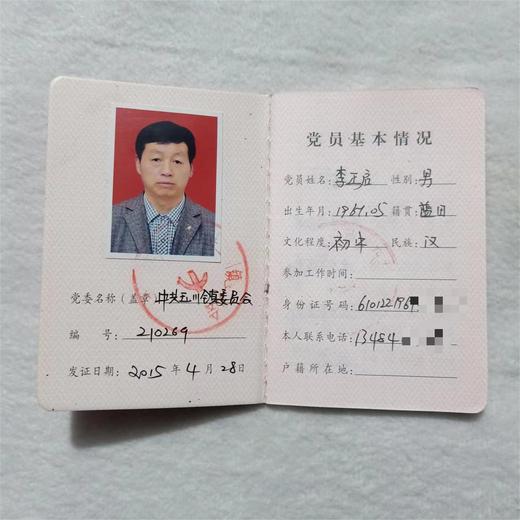 党委名称(盖章) 中共玉川镇委员会
编 号: 210269
发证日期: 2015 年 4 月 28日
党员基本情况
党员姓名: 李正启 性别: 男
出生年月: 1961.05 籍贯: 蓝田
文化程度: 初中 民族: 汉
参加工作时间:
身份证号码: 610122196
本人联系电话: 13484
户籍所在地: